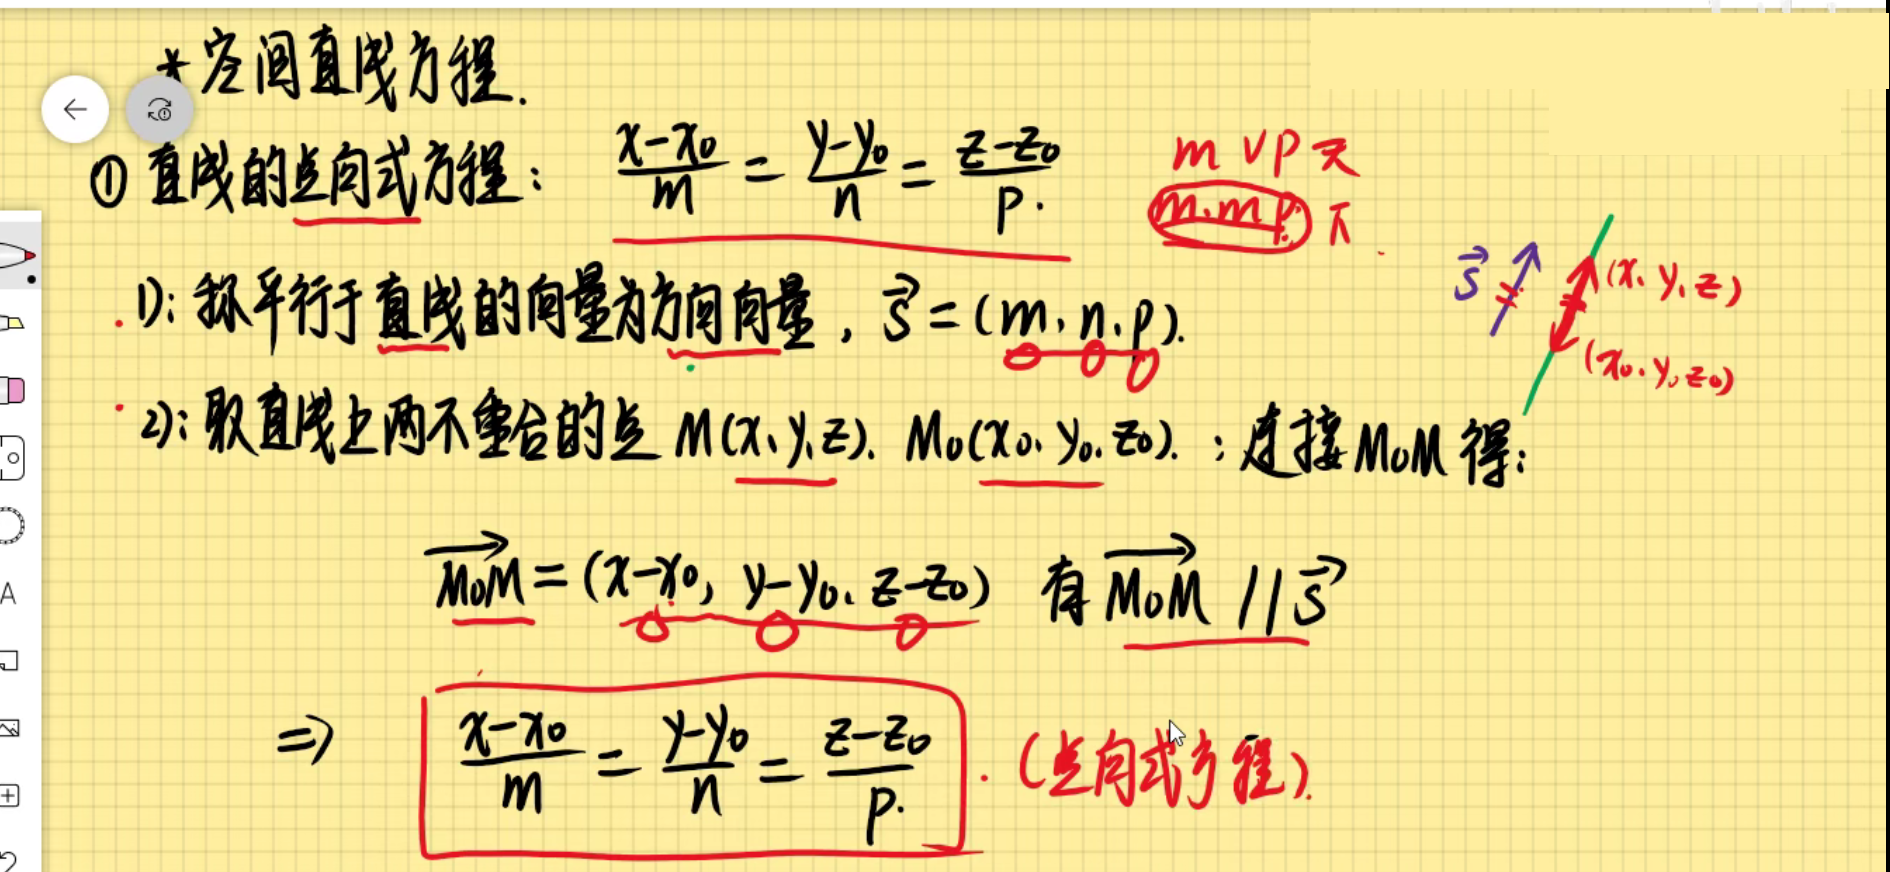 * 空间直线方程.
① 直线的点向式方程: (x-x₀)/m = (y-y₀)/n = (z-z₀)/p.
m v p 天
m.m p. 下
1): 称平行于直线的向量为方向向量, s⃗ = (m, n, p).
s⃗ (x, y, z)
(x₀, y₀ z₀)
2): 取直线上两不重合的点 M(x, y, z). M₀(x₀, y₀, z₀). ; 连接 M₀M 得:
M₀M⃗ = (x-x₀, y-y₀, z-z₀) 有 M₀M⃗ // s⃗
⇒ (x-x₀)/m = (y-y₀)/n = (z-z₀)/p. (点向式方程).
A